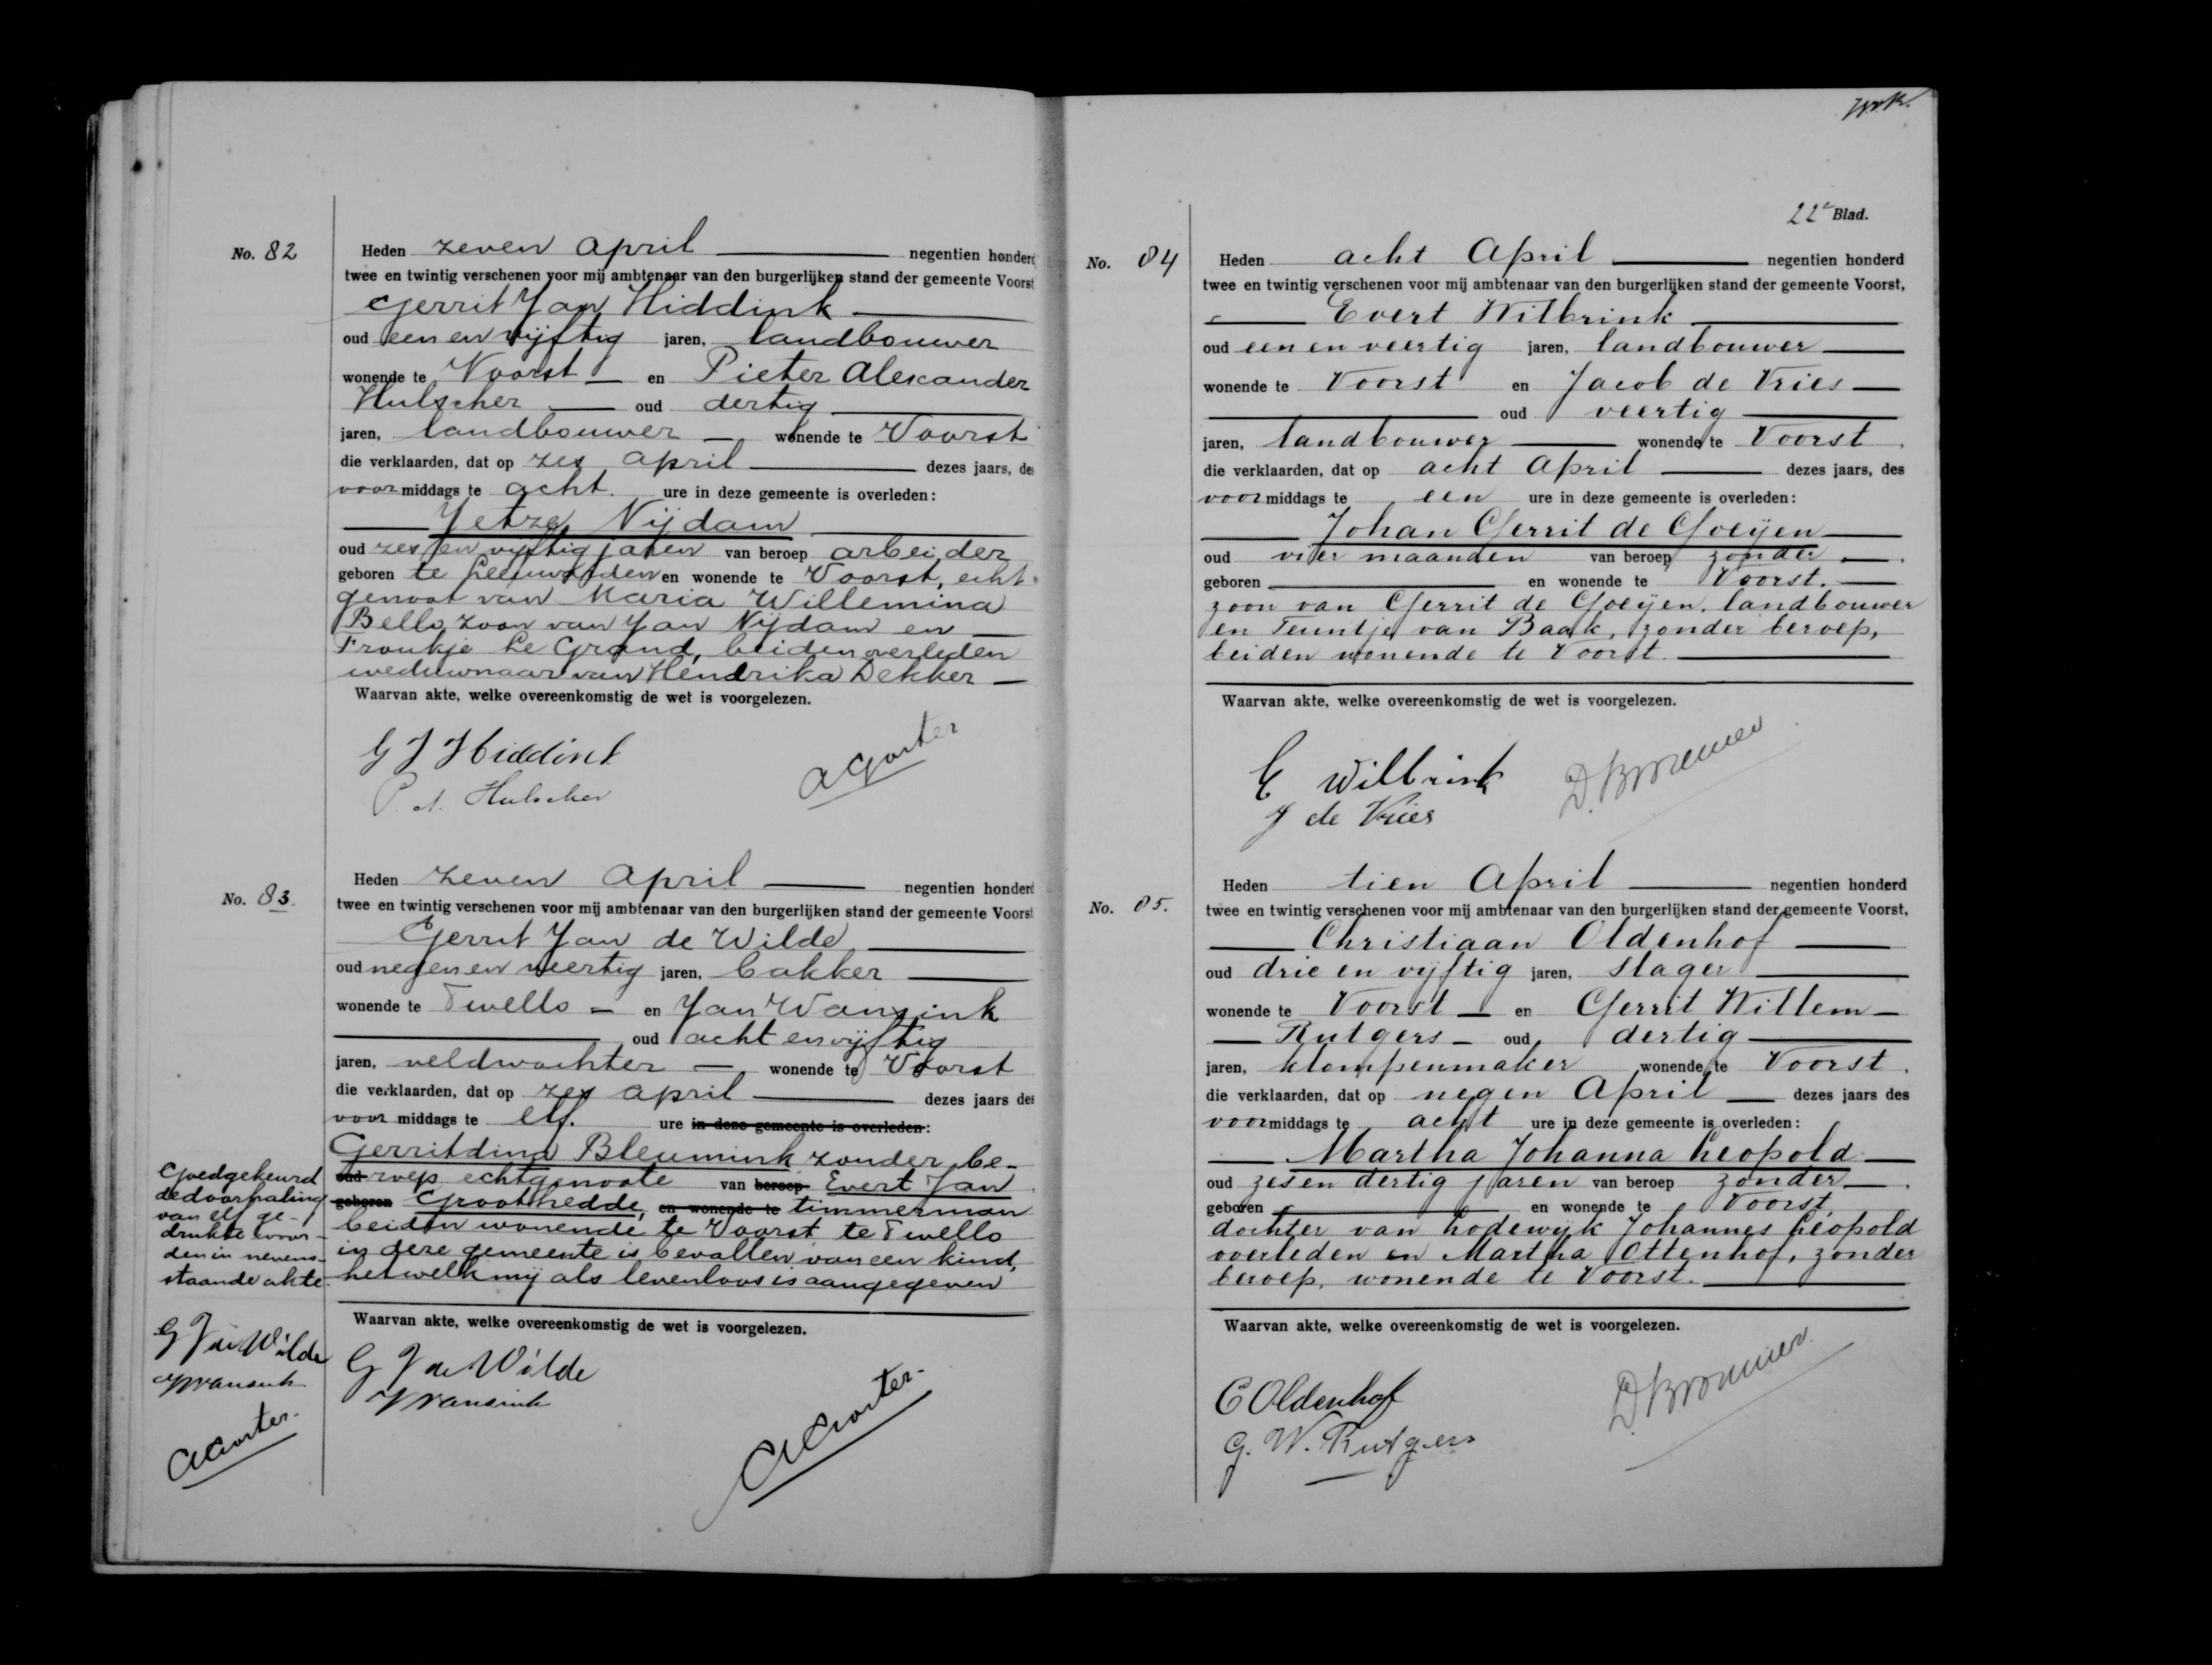 No. 82
Heden zeven April negentien honderd
twee en twintig verschenen voor mij ambtenaar van den burgerlijken stand der gemeente Voorst
Gerrit Jan Hiddink
oud een en vijftig jaren, landbouwer
wonende te Voorst en Pieter Alexander
Hulscher oud dertig
jaren, landbouwer wonende te Voorst
die verklaarden, dat op zes April dezes jaars, des
voormiddags te acht ure in deze gemeente is overleden:
Jetze Nijdam
oud zes en vijftig jaren van beroep arbeider
geboren te Leeuwarden en wonende te Voorst, echt
genoot van Maria Willemina
Bello, zoon van Jan Nijdam en
Froukje Le Grand, beiden overleden
weduwnaar van Hendrika Dekker
Waarvan akte, welke overeenkomstig de wet is voorgelezen.
G J Hiddink
P. A. Hulscher
A Gorter
No. 83.
Heden zeven April negentien honderd
twee en twintig verschenen voor mij ambtenaar van den burgerlijken stand der gemeente Voorst
Gerrit Jan de Wilde
oud negen en veertig jaren, bakker
wonende te Twello en Jan Wansink
oud acht en vijftig
jaren, veldwachter wonende te Voorst
die verklaarden, dat op zes April dezes jaars des
voor middags te elf. ure in deze gemeente is overleden:
Gerritdina Bleumink zonder be-
oud roep echtgenoote van beroep Evert Jan
geboren Groothedde, en wonende te timmerman
beiden wonende te Voorst te Twello
in deze gemeente is bevallen van een kind,
hetwelk mij als levenloos is aangegeven
Goedgekeurd
de doorhaling
van elf ge-
drukte woor-
den in nevens-
staande akte.
G J de Wilde
J Wansink
A Gorter.
Waarvan akte, welke overeenkomstig de wet is voorgelezen.
G J de Wilde
J Wansink
A Gorter.
22e Blad.
No. 84
Heden acht April negentien honderd
twee en twintig verschenen voor mij ambtenaar van den burgerlijken stand der gemeente Voorst,
Evert Wilbrink
oud een en veertig jaren, landbouwer
wonende te Voorst en Jacob de Vries
oud veertig
jaren, landbouwer wonende te Voorst.
die verklaarden, dat op acht April dezes jaars, des
voormiddags te een ure in deze gemeente is overleden:
Johan Gerrit de Goeijen
oud vier maanden van beroep zonder.
geboren en wonende te Voorst.
zoon van Gerrit de Goeijen, landbouwer
en Teuntje van Baak, zonder beroep,
beiden wonende te Voorst.
Waarvan akte, welke overeenkomstig de wet is voorgelezen.
E Wilbrink
J de Vries
No. 85.
Heden tien April negentien honderd
twee en twintig verschenen voor mij ambtenaar van den burgerlijken stand der gemeente Voorst,
Christiaan Oldenhof
oud drie en vijftig jaren, slager
wonende te Voorst en Gerrit Willem
Rutgers oud dertig
jaren, klompenmaker wonende te Voorst.
die verklaarden, dat op negen April dezes jaars des
voormiddags te acht ure in deze gemeente is overleden:
Martha Johanna Leopold
oud zes en dertig jaren van beroep zonder.
geboren en wonende te Voorst,
dochter van Lodewijk Johannes Leopold
overleden en Martha Ottenhof, zonder
beroep, wonende te Voorst.
Waarvan akte, welke overeenkomstig de wet is voorgelezen.
C Oldenhof
G. W. Rutgers